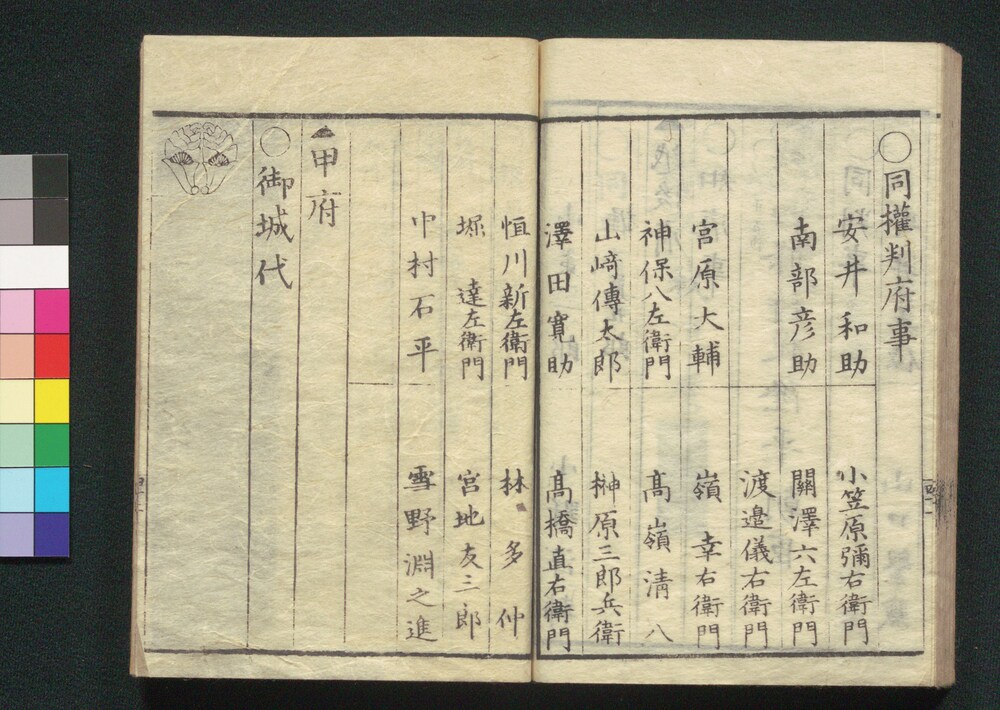 〇同權判府事
安井和助
小笠原彌右衛門
南部彦助
關澤六左衛門
渡邉儀右衛門
宮原大輔
嶺幸右衛門
神保八左衛門
髙嶺淸八
山﨑傳太郎
榊原三郎兵衛
澤田寛助
髙橋直右衛門
恒川新左衛門
林多仲
堀達左衛門
宮地友三郎
中村石平
雪野淵之進
▲甲府
〇御城代